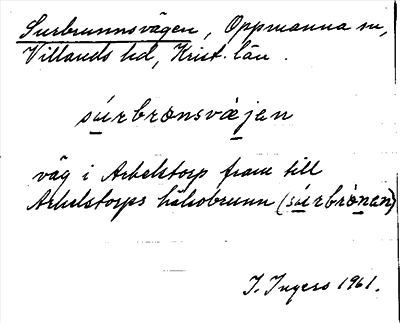 Surbrunnsvägen, Oppmanna sn,
Villands hd, Krist. län.
súrbrønsvæ̀jen
väg i Arkelstorp fram till
Arkelstorps hälsobrunn (súrbrø̀nan)
I. Ingers 1961.